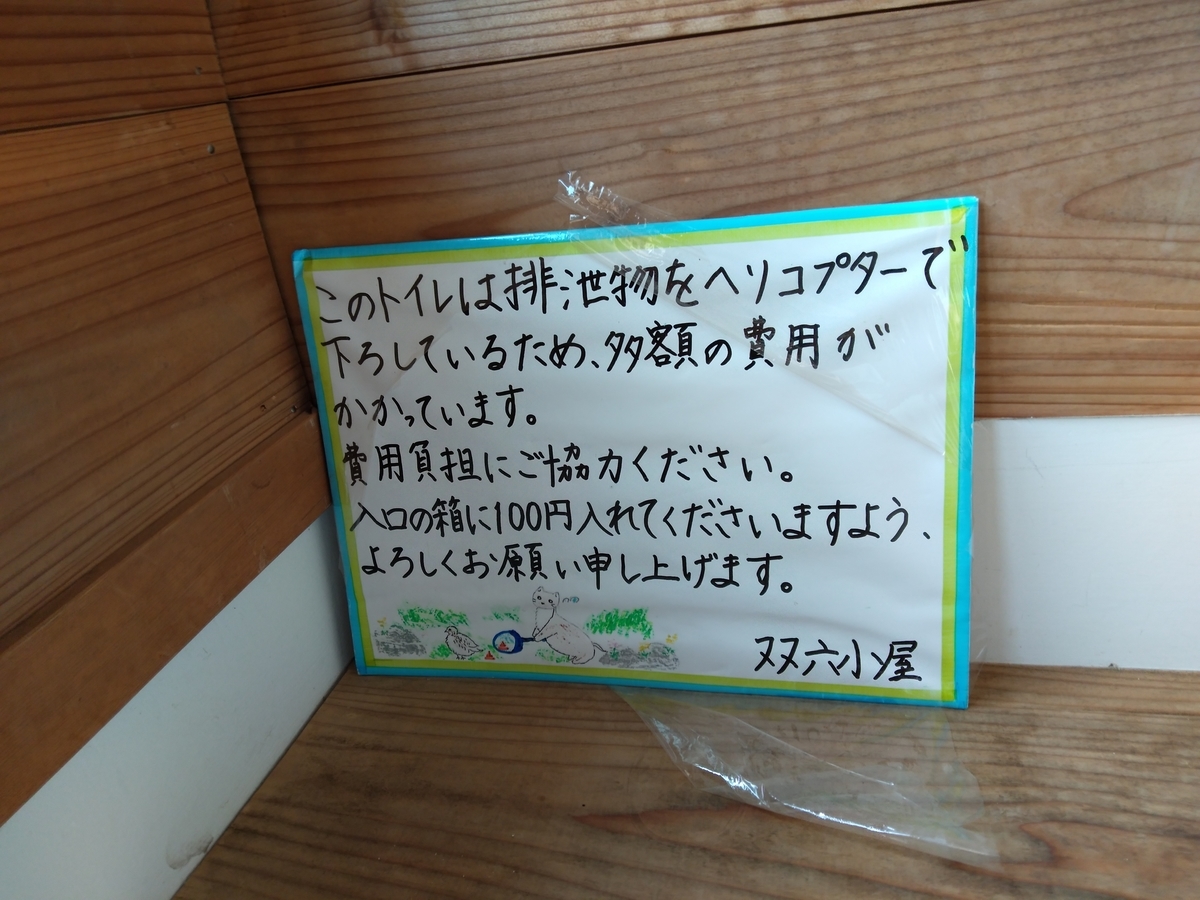 このトイレは排泄物をヘリコプターで
下ろしているため、多額の費用が
かかっています。
費用負担にご協力ください。
入口の箱に100円入れてくださいますよう、
よろしくお願い申し上げます。
双六小屋